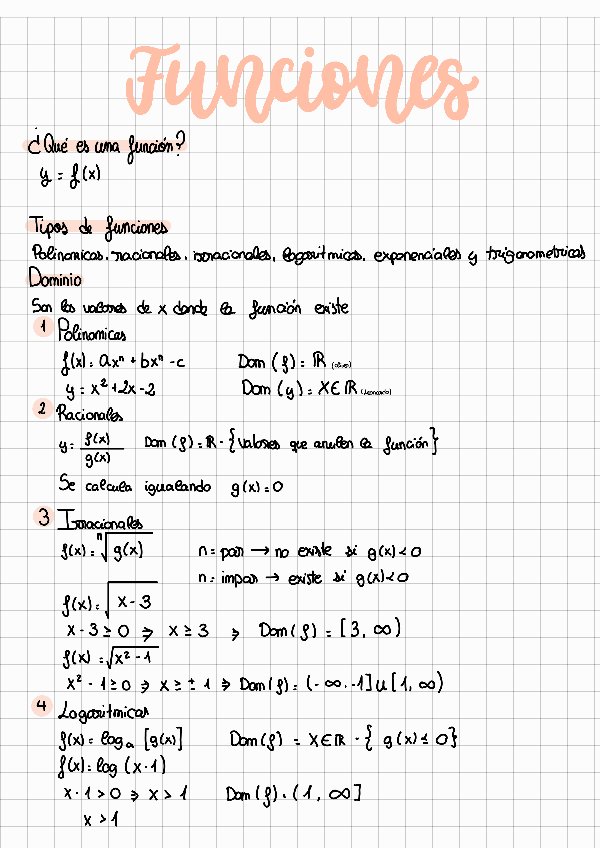 Funciones
¿Qué es una función?
y = f(x)
Tipos de funciones
Polinomicas, racionales, irracionales, logaritmicas, exponenciales y trigonometricas
Dominio
Son los valores de x donde la función existe
1 Polinomicas
f(x) = axⁿ + bxⁿ - c Dom (f) = ℝ
y = x² + 2x - 2 Dom (y) = X ∈ ℝ
2 Racionales
y = f(x)/g(x) Dom (f) = ℝ - {valores que anulen la función}
Se calcula igualando g(x) = 0
3 Irracionales
f(x) = ⁿ√g(x) n = par → no existe si g(x) < 0
n = impar → existe si g(x) < 0
f(x) = √x - 3
x - 3 ≥ 0 ⇒ x ≥ 3 ⇒ Dom (f) = [3, ∞)
f(x) = √x² - 1
x² - 1 ≥ 0 ⇒ x ≥ ± 1 ⇒ Dom (f) = (-∞, -1] U [1, ∞)
4 Logaritmicas
f(x) = logₐ [g(x)] Dom (f) = X ∈ ℝ - { g(x) ≤ 0}
f(x) = log (x - 1)
x - 1 > 0 ⇒ x > 1 Dom (f) = (1, ∞]
x > 1